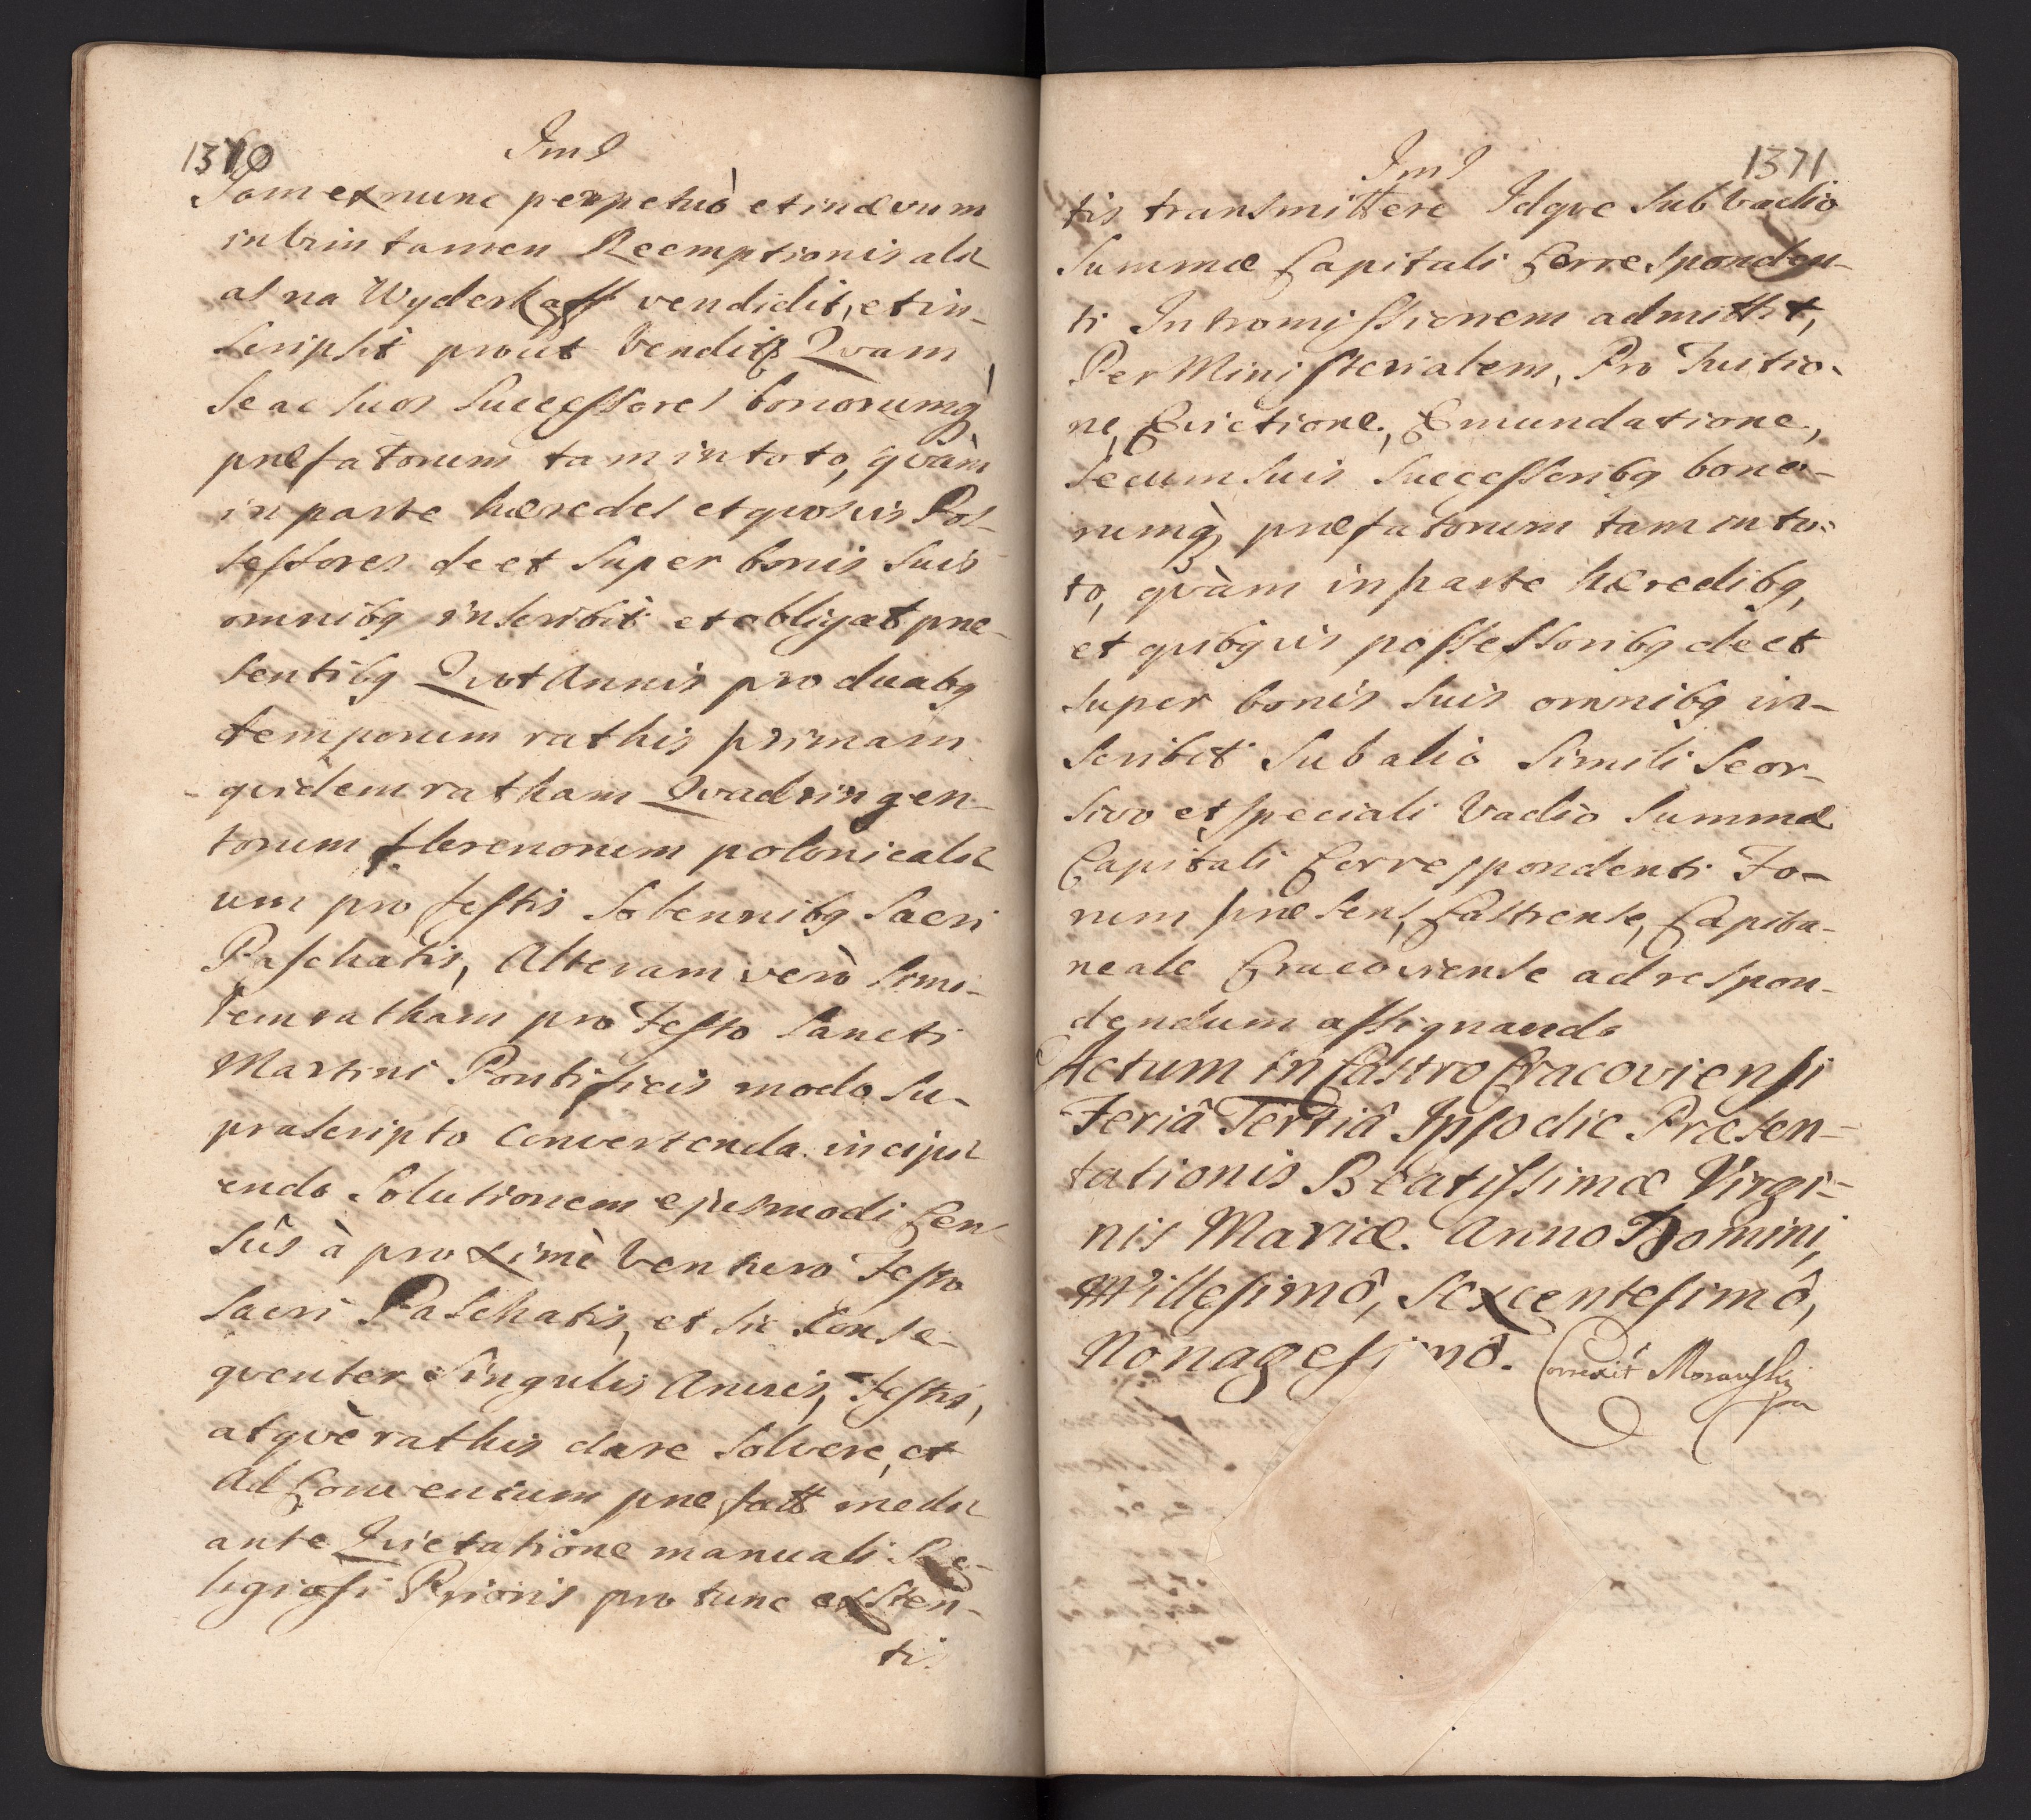 1370
JmJ
Jam ex nunc perpetuò et in ævum
in vim tamen Reemptionis ali
as na Wyderkaff vendidit, et in-
scripsit prout Vendit Qvam
se ac suos Successores bonorumq́
præfatorum tam in toto, qvàm
in parte hæredes et qvosvis Pos-
sessores de et super bonis suis
omnibq inscribit et obligat præ-
sentibq Qvot Annis pro duabq
temporum rathis primam
qvidem ratham Qvadringen-
torum florenorum polonicali
um pro festis Solennibq Sacri
Paschatis, Alteram verò simi-
lem ratham pro Festo Sancti
Martini Pontificis modo su-
prascripto Convertenda incipi
endo Solutionem ejusmodi Cen-
sûs à proximè Venturo Festo
Sacri Paschatis, et sic Conse-
qventer Singulis Annis, Festis,
atqvè rathis dare solvere, et
ad Conventum præfatt medi
ante Qvietatione manuali Re-
ligiosi Prioris pro tunc existen-
ti.
JmJ
1371
tis transmittere Idqve Sub vadio
Summæ Capitali Corresponden-
ti Intromissionem admittit,
Per Ministerialem, Pro Tuitio-
ne, Evictione, Emundatione,
Secum suis Successoribq bono-
rumq́ præfatorum tam in to-
to, qvàm in parte hæredibq,
et qvibqvis possessoribq de et
super bonis suis omnibq in-
scribit Sub alio Simili Seor-
sivo et speciali Vadio Summæ
Capitali Correspondenti Fo-
rum præsens, Castrense, Capita-
neale Cracoviense ad respon-
dendum assignando
Actum in Castro Cracoviensi
Feriâ Tertiâ Ipso die Præsen-
tationis Beatissimæ Virgi-
nis Mariæ. Anno Domini,
Millesimô, Sexcentesimô,
Nonagesimô. Correxit Morawski